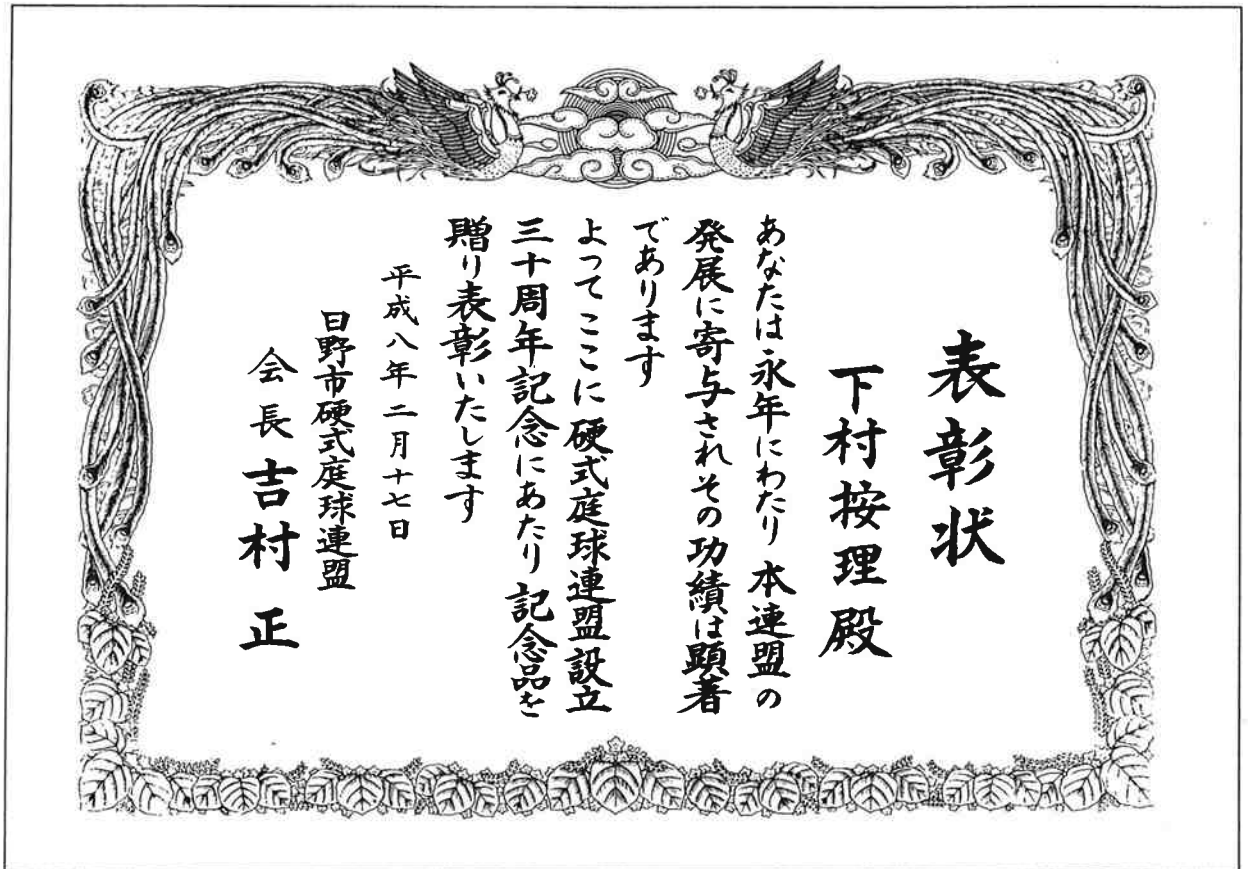 表彰状
下村按理殿
あなたは永年にわたり本連盟の
発展に寄与されその功績は顕著
であります
よってここに硬式庭球連盟設立
三十周年記念にあたり記念品を
贈り表彰いたします
平成八年二月十七日
日野市硬式庭球連盟
会長吉村正